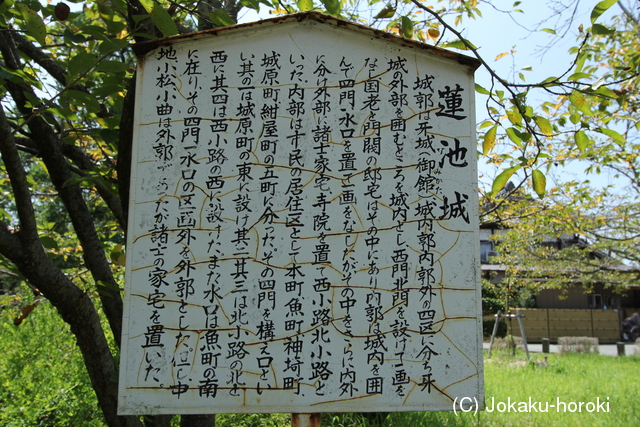 蓮池城
城郭は牙城(御館)城内郭内郭外の四区に分ち牙
城の外部を囲むところを城内とし西門北門を設けて一画を
なし国老と門閥の邸宅はその中にあり内郭は城内を囲
んで四門一水口を置て一画をなしたがその中をさらに内外
に分け外部に諸士家宅寺院を置て西小路北小路と
いゝ、内部は市民の居住区として本町、魚町、神埼町、
城原町紺屋町の五町に分った。その四門を構え口とい
い、其の一は城原町の東に設け其二其三は北小路の北と
西に其四は西小路の西に設けた。また水口は魚町の南
に在りこの四門一水口の区画外を外郭とした。
地、小松小曲は外郭であったが諸士の家宅を置いた。
(C) Jokaku-horoki